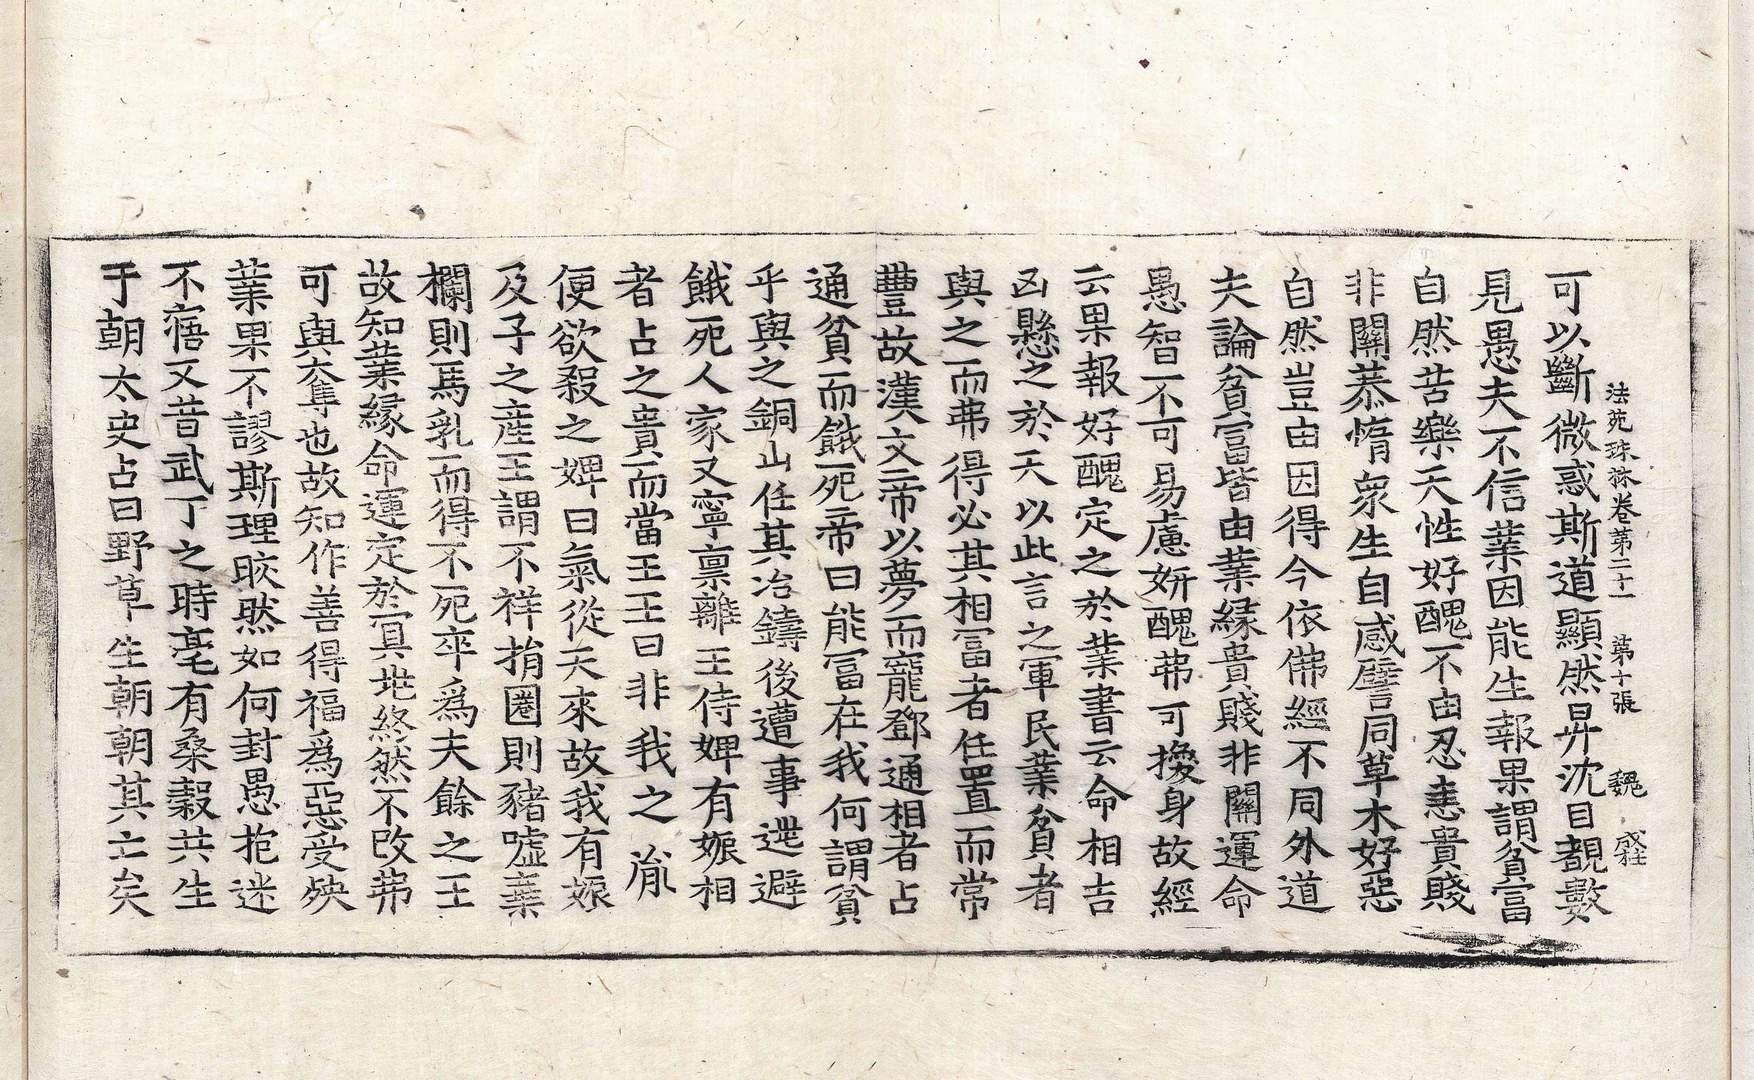 法苑珠林卷第二十一 第十張 魏
可以斷微惑斯道顯然昇沈目覩數
見愚夫不信業因能生報果謂貧富
自然苦樂天性好醜不由忍恚貴賤
非關恭惰衆生自感譬同草木好惡
自然豈由因得今依佛經不同外道
夫論貧富皆由業緣貴賤非關運命
愚智不可易慮妍醜弗可換身故經
云果報好醜定之於業書云命相吉
凶懸之於天以此言之軍民業貧者
與之而弗得必其相富者任置而常
豊故漢文帝以夢而寵鄧通相者占
通貧而餓死帝曰能富在我何謂貧
乎與之銅山任其冶鑄後遭事逃避
餓死人家又寧禀離王侍婢有娠相
者占之貴而當王王曰非我之胤
便欲殺之婢曰氣從天來故我有娠
及子之產王謂不祥捐圈則豬噓棄
欄則馬乳而得不死卒爲夫餘之王
故知業緣命運定於冥兆終然不改弗
可與奪也故知作善得福爲惡受殃
業果不謬斯理皎然如何封愚抱迷
不寤又昔武丁之時亳有桑穀共生
于朝太史占曰野草生朝朝其亡矣